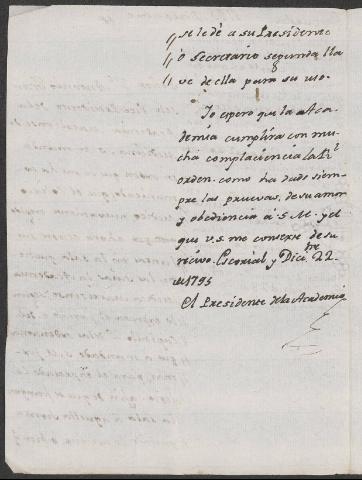 se le dé a su Presidente
ò Secretario segunda lla
ve de ella para su uso.
Yo espero que la Aca
demia cumplira con mu
cha complaciencia la Rl
orden. como ha dado siem
pre las pruevas, de su amor
y obediencia à S. M. y el
que V. S. me conserve de su
recivo. Escorial y Dicibre 22.
de 1795
El Presidente de la Academia